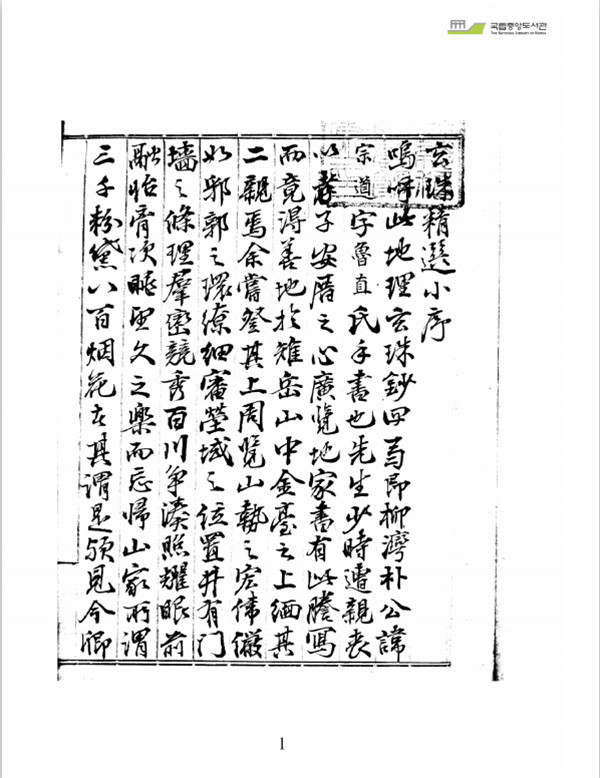 국립중앙도서관
THE NATIONAL LIBRARY OF KOREA
玄珠精選小序
嗚呼此地理玄珠鈔四局卽柳灣朴公諱
宗道字魯直氏手書也先生少時遭親喪
以孝子安厝之心廣覽地家書有此謄寫
而竟得善地於雉岳山中金臺之上緬其
二親焉余嘗登其上周覽山勢之宏偉儼
如郛郭之環繚細審塋域之位置井有門
墻之條理羣巒競秀百川爭湊照耀眼前
融怡膏次眺望久之樂而忘歸山家所謂
三千粉黛八百烟花在其謂是頎見今卿
1